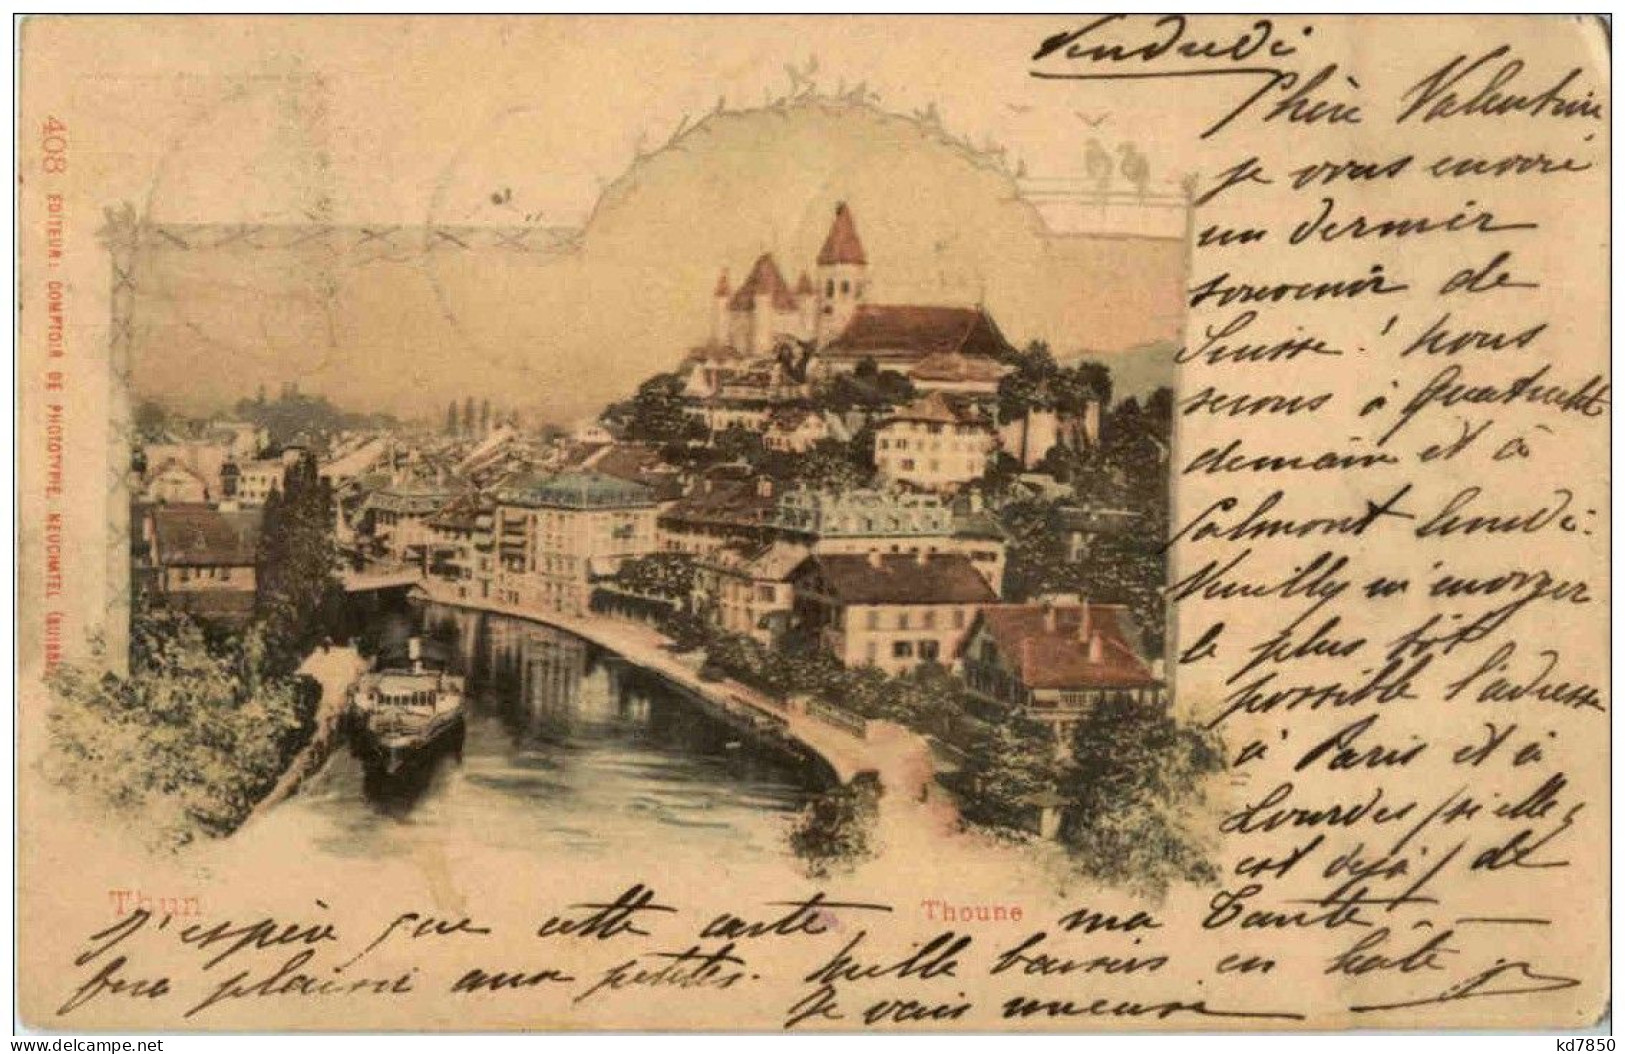 Vendredi
Chère Valentine
je vous envoie
un dernier
souvenir de
Suisse! nous
serons à
demain et à
Valmont lundi.
Veuillez m'envoyer
le plus tôt
possible l'adresse
à Paris et à
Lourdes (si elle
est déjà) de
ma Tante
J'espère que cette carte
fera plaisir aux petites. Mille baisers en hâte
Je vais
408 EDITEUR: COMPTOIR DE PHOTOTYPIE, NEUCHATEL (SUISSE)
Thun
Thoune
delcampe.net
kd7850